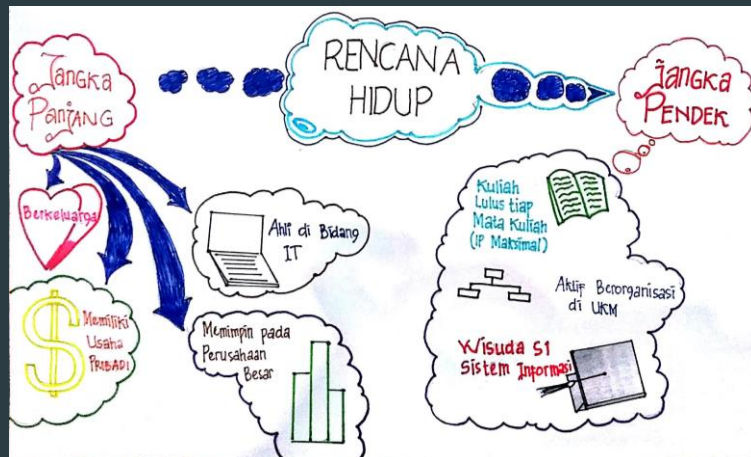 RENCANA
HIDUP
Jangka
PanJANG
Berkeluarga
Memiliki
Usaha
PRIBADI
Ahli di Bidang
IT
Memimpin pada
Perusahaan
Besar
Jangka
PENDEK
Kuliah
Lulus tiap
Mata Kuliah
(IP Maksimal)
Aktif Berorganisasi
di UKM
Wisuda S1
Sistem Informasi